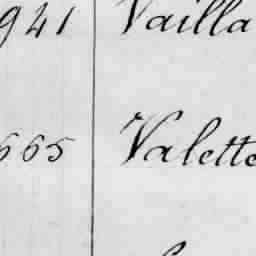 941 Vailla
665 Valette